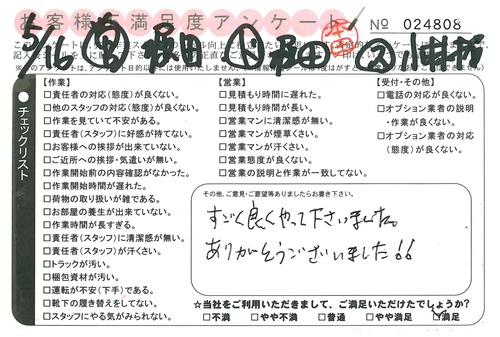 お客様満足度アンケート
№ 024808
5/16
チェックリスト
【作業】
□責任者の対応(態度)が良くない。
□他のスタッフの対応(態度)が良くない。
□作業を見ていて不安がある。
□責任者(スタッフ)に好感が持てない。
□お客様への挨拶が出来ていない。
□ご近所への挨拶・気遣いが無い。
□作業開始前の内容確認がなかった。
□作業開始時間が遅れた。
□荷物の取り扱いが雑である。
□お部屋の養生が出来ていない。
□作業時間が長すぎる。
□責任者(スタッフ)に清潔感が無い。
□責任者(スタッフ)が汗くさい。
□トラックが汚い。
□梱包資材が汚い。
□運転が不安(下手)である。
□靴下の履き替えをしてない。
□スタッフにやる気がみられない。
【営業】
□見積もり時間に遅れた。
□見積もり時間が長い。
□営業マンに清潔感が無い。
□営業マンが煙草くさい。
□営業マンが汗くさい。
□営業態度が良くない。
□営業の説明と作業が一致してない。
【受付・その他】
□電話の対応が良くない。
□オプション業者の説明・作業が良くない。
□オプション業者の対応(態度)が良くない。
その他、ご意見・ご要望等ありましたらお書き下さい。
すごく良くやって下さいました。
ありがとうございました!!
☆当社をご利用いただきまして、ご満足いただけたでしょうか?
□不満 □やや不満 □普通 □やや満足 ☑満足